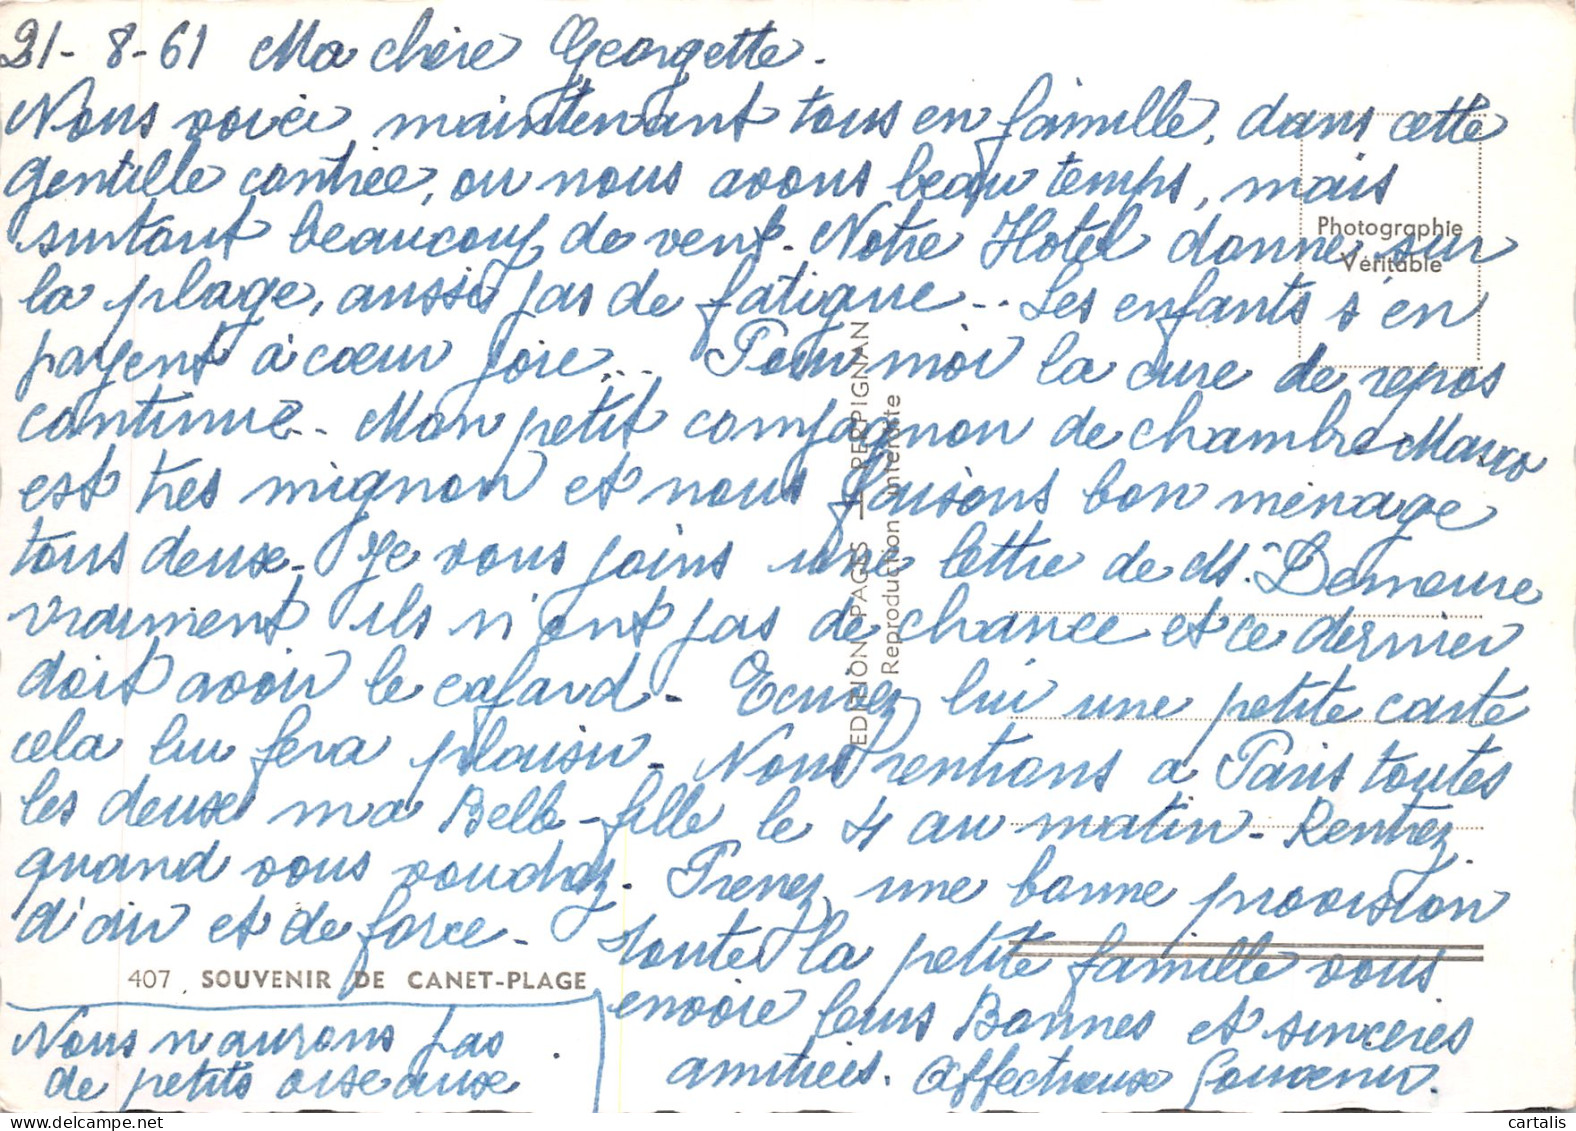 21-8-61 Ma chère Georgette.
Nous voici maintenant tous en famille, dans cette
gentille contrée, ou nous avons beau temps, mais
surtout beaucoup de vent. Notre Hotel donne sur
la plage, aussi pas de fatigue.. Les enfants s'en
payent à cœur joie... Pour moi la cure de repos
continue.. Mon petit compagnon de chambre Marco
est très mignon et nous faisons bon ménage
tous deux. Je vous joins une lettre de M. Demeure
vraiment ils n'ont pas de chance et ce dernier
doit avoir le cafard. Ecrivez lui une petite carte
cela lui fera plaisir. Nous rentrons a Paris toutes
les deux ma Belle-fille le 4 au matin. Rentrez
quand vous voudrez. Prenez une bonne provision
d'air et de force. toute la petite famille vous
envoie leurs Bonnes et sincères
amitiés. Affectueux Souvenir.
Nous n'aurons pas
de petits oiseaux
407. SOUVENIR DE CANET-PLAGE
Photographie
Véritable
EDITION PAGÈS — PERPIGNAN
Reproduction interdite
cartalis